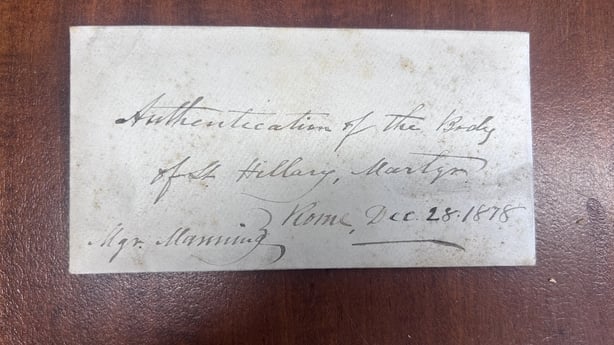 Authentication of the Body
of St Hillary, Martyr
Rome, Dec. 28. 1878
Mgr. Manning